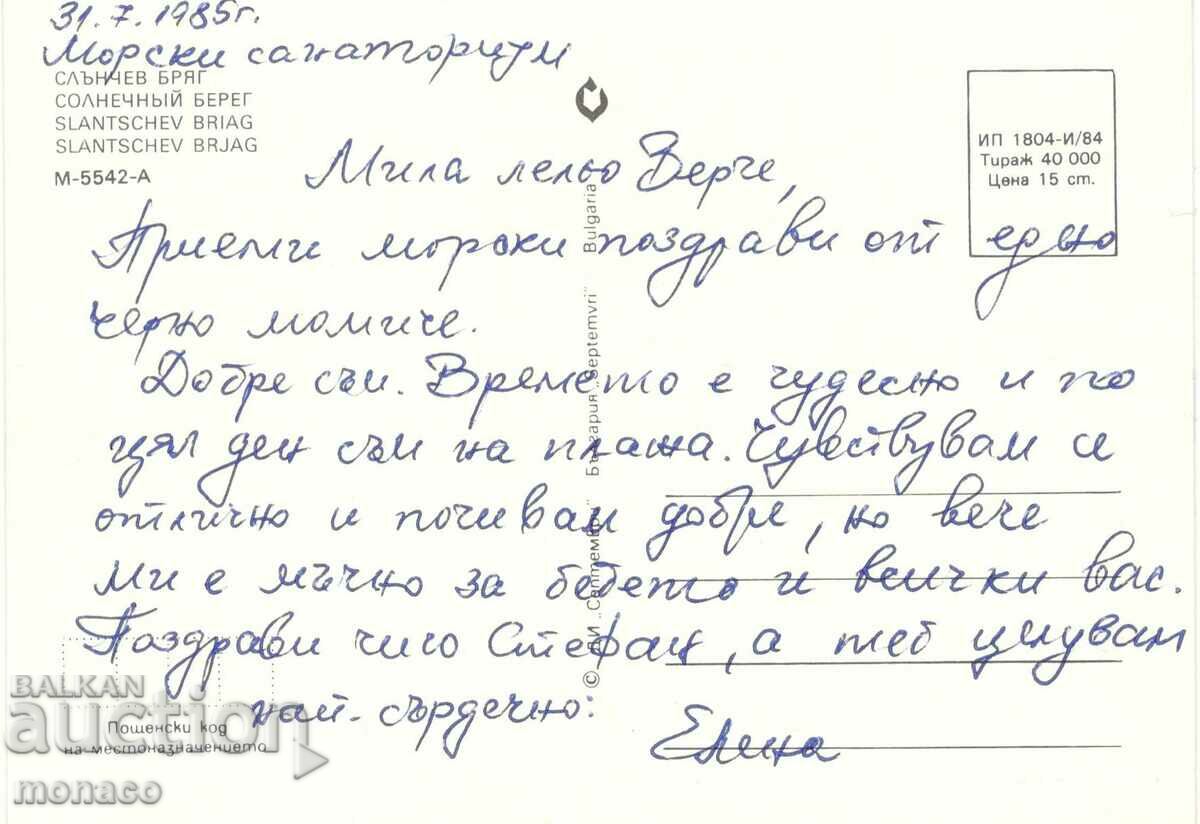 31.7.1985г.
Морски санаториум
СЛЪНЧЕВ БРЯГ
СОЛНЕЧНЫЙ БЕРЕГ
SLANTSCHEV BRIAG
SLANTSCHEV BRJAG
М-5542-А
ИП 1804-И/84
Тираж 40 000
Цена 15 ст.
Мила лельо Верче,
Приеми морски поздрави от едно
черно момиче.
Добре съм. Времето е чудесно и по
цял ден съм на плажа. Чувствувам се
отлично и почивам добре, но вече
ми е мъчно за бебето и всички вас.
Поздрави чичо Стефан, а теб целувам
най-сърдечно:
Елина
© ДИ „Септември" България „Septemvri" Bulgaria
Пощенски код
на местоназначението
BALKAN
auction
monaco